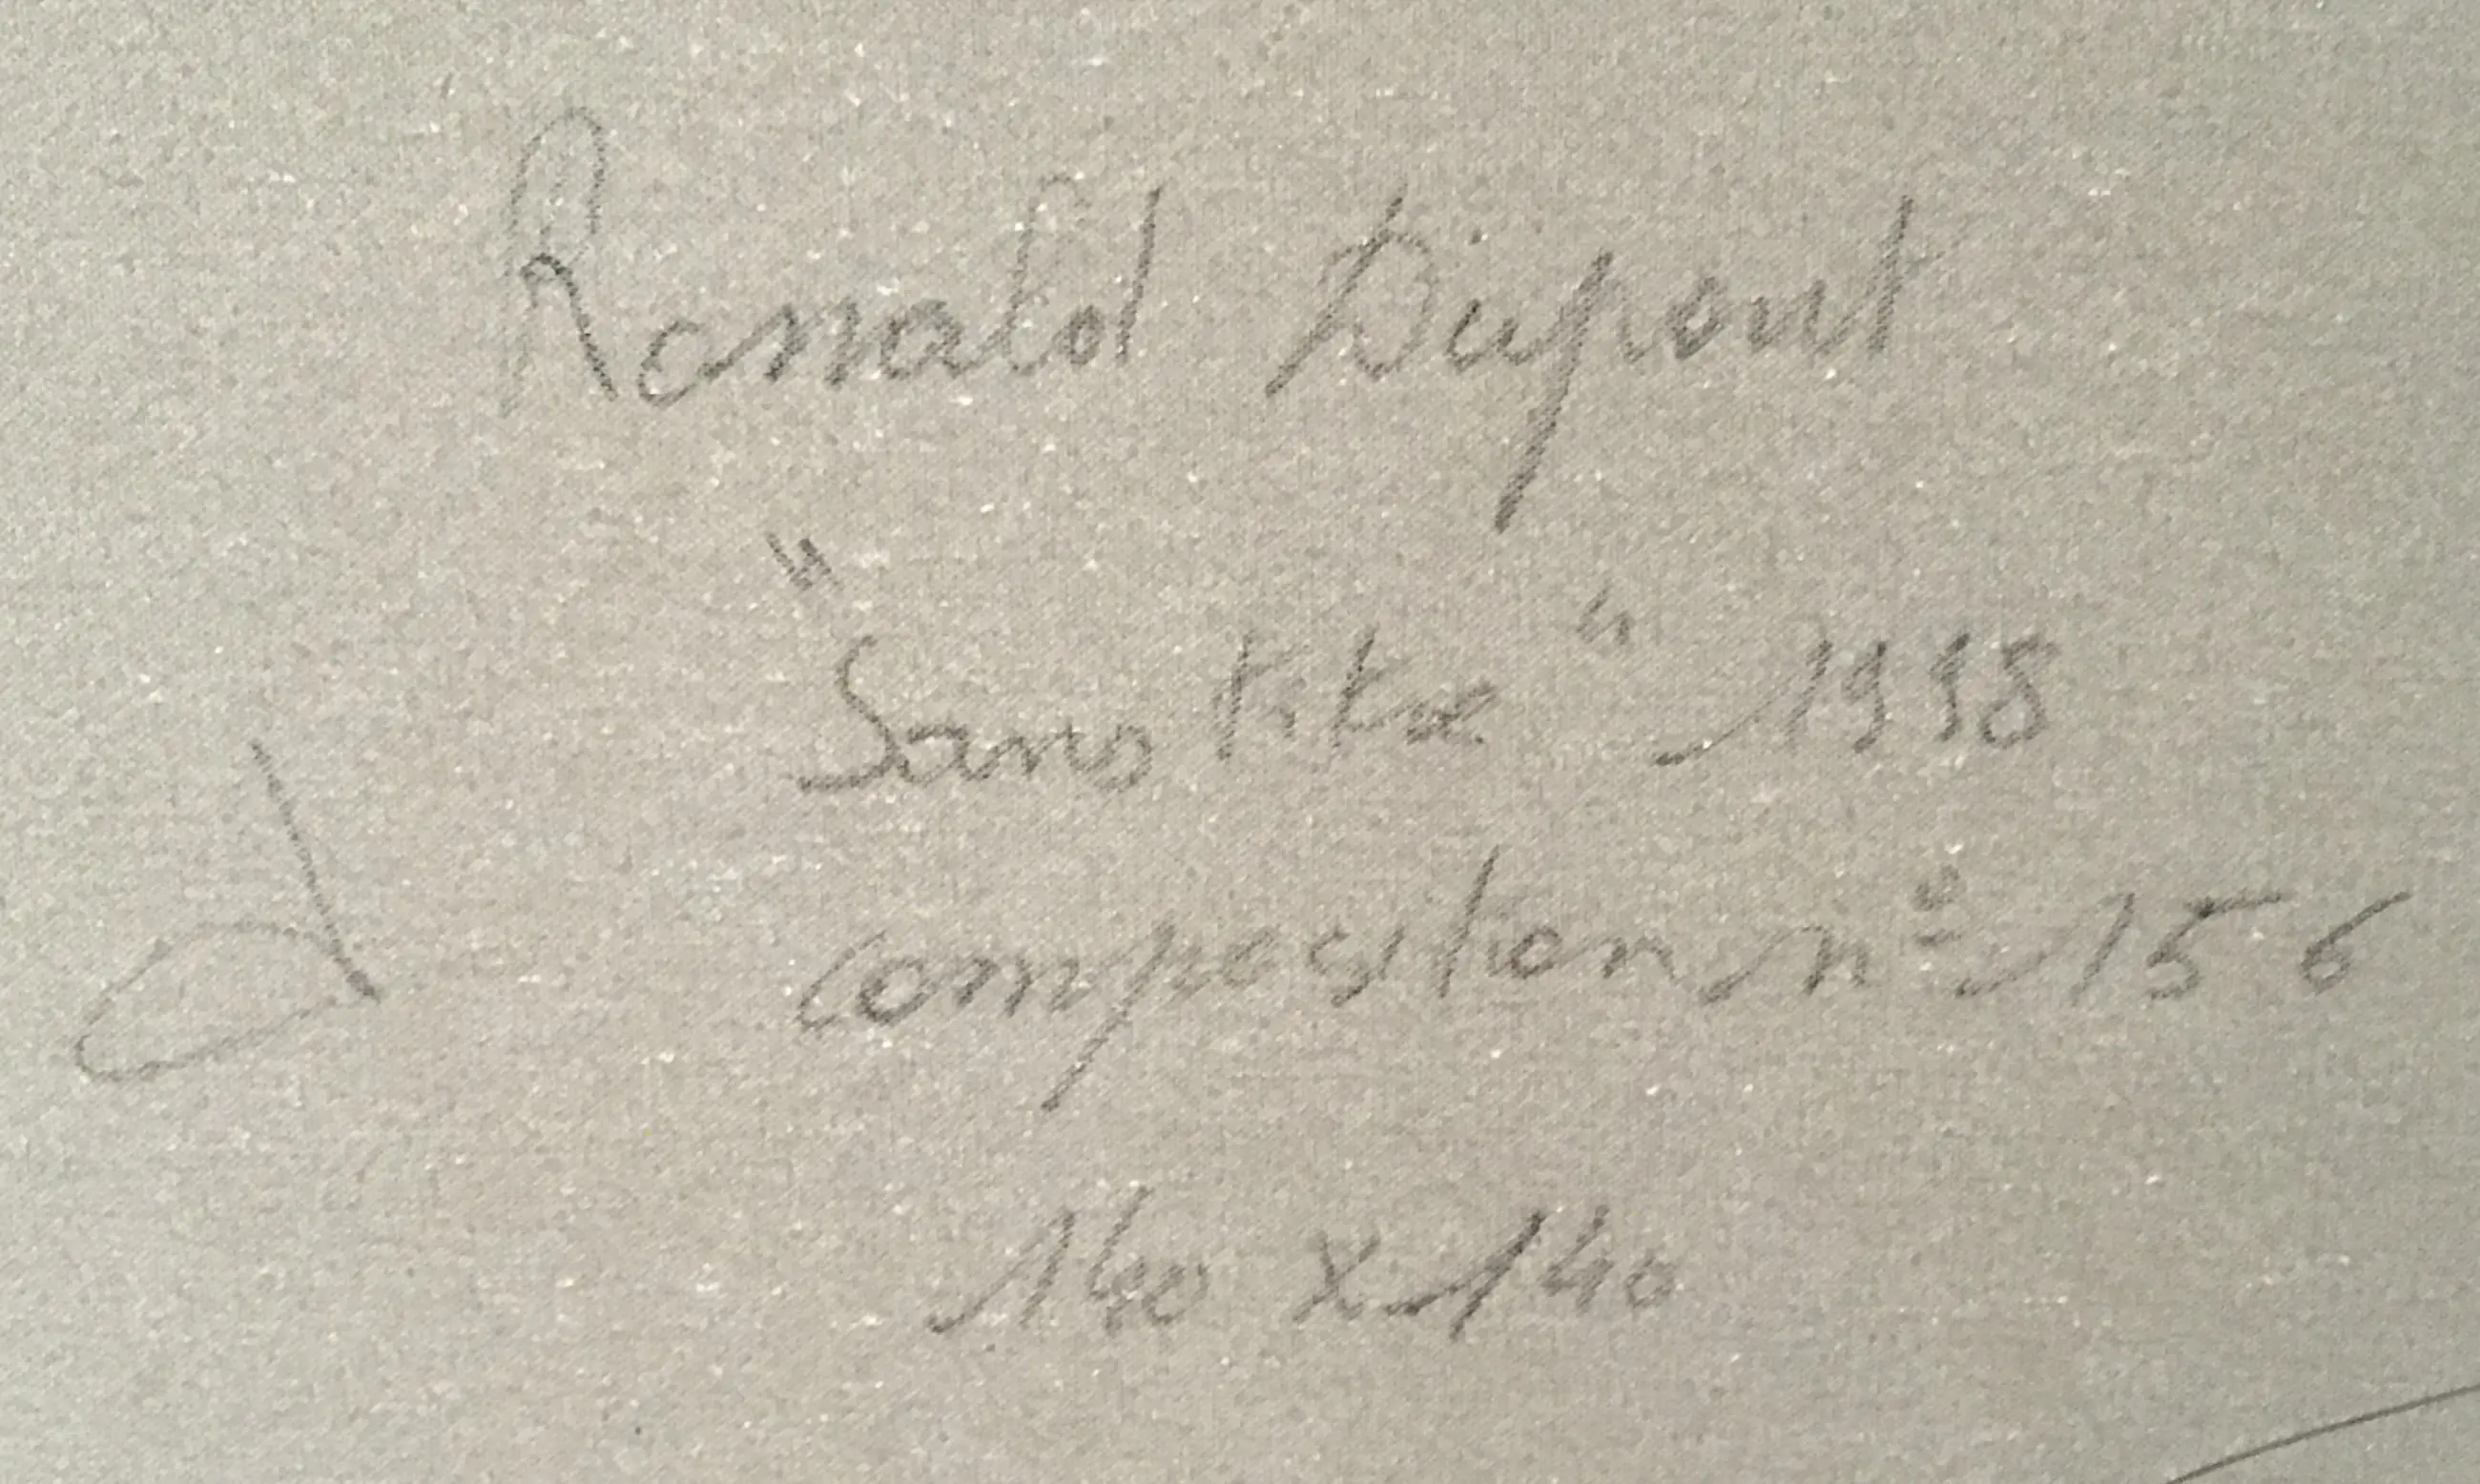 Ronald Dupont
"Sans titre" 1998
composition n° 156
140 x 140